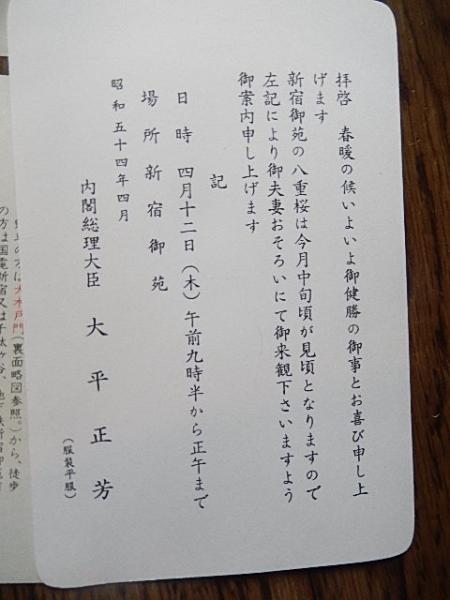 拝啓　春暖の候いよいよ御健勝の御事とお喜び申し上
げます
新宿御苑の八重桜は今月中旬頃が見頃となりますので
左記により御夫妻おそろいにて御来観下さいますよう
御案内申し上げます
記
日時　四月十二日（木）午前九時半から正午まで
場所　新宿御苑
昭和五十四年四月
内閣総理大臣　大平正芳
（服装平服）
大木戸門（裏面略図参照。）から、徒歩
の方は国電新宿又は千駄ヶ谷、地下鉄新宿御苑前